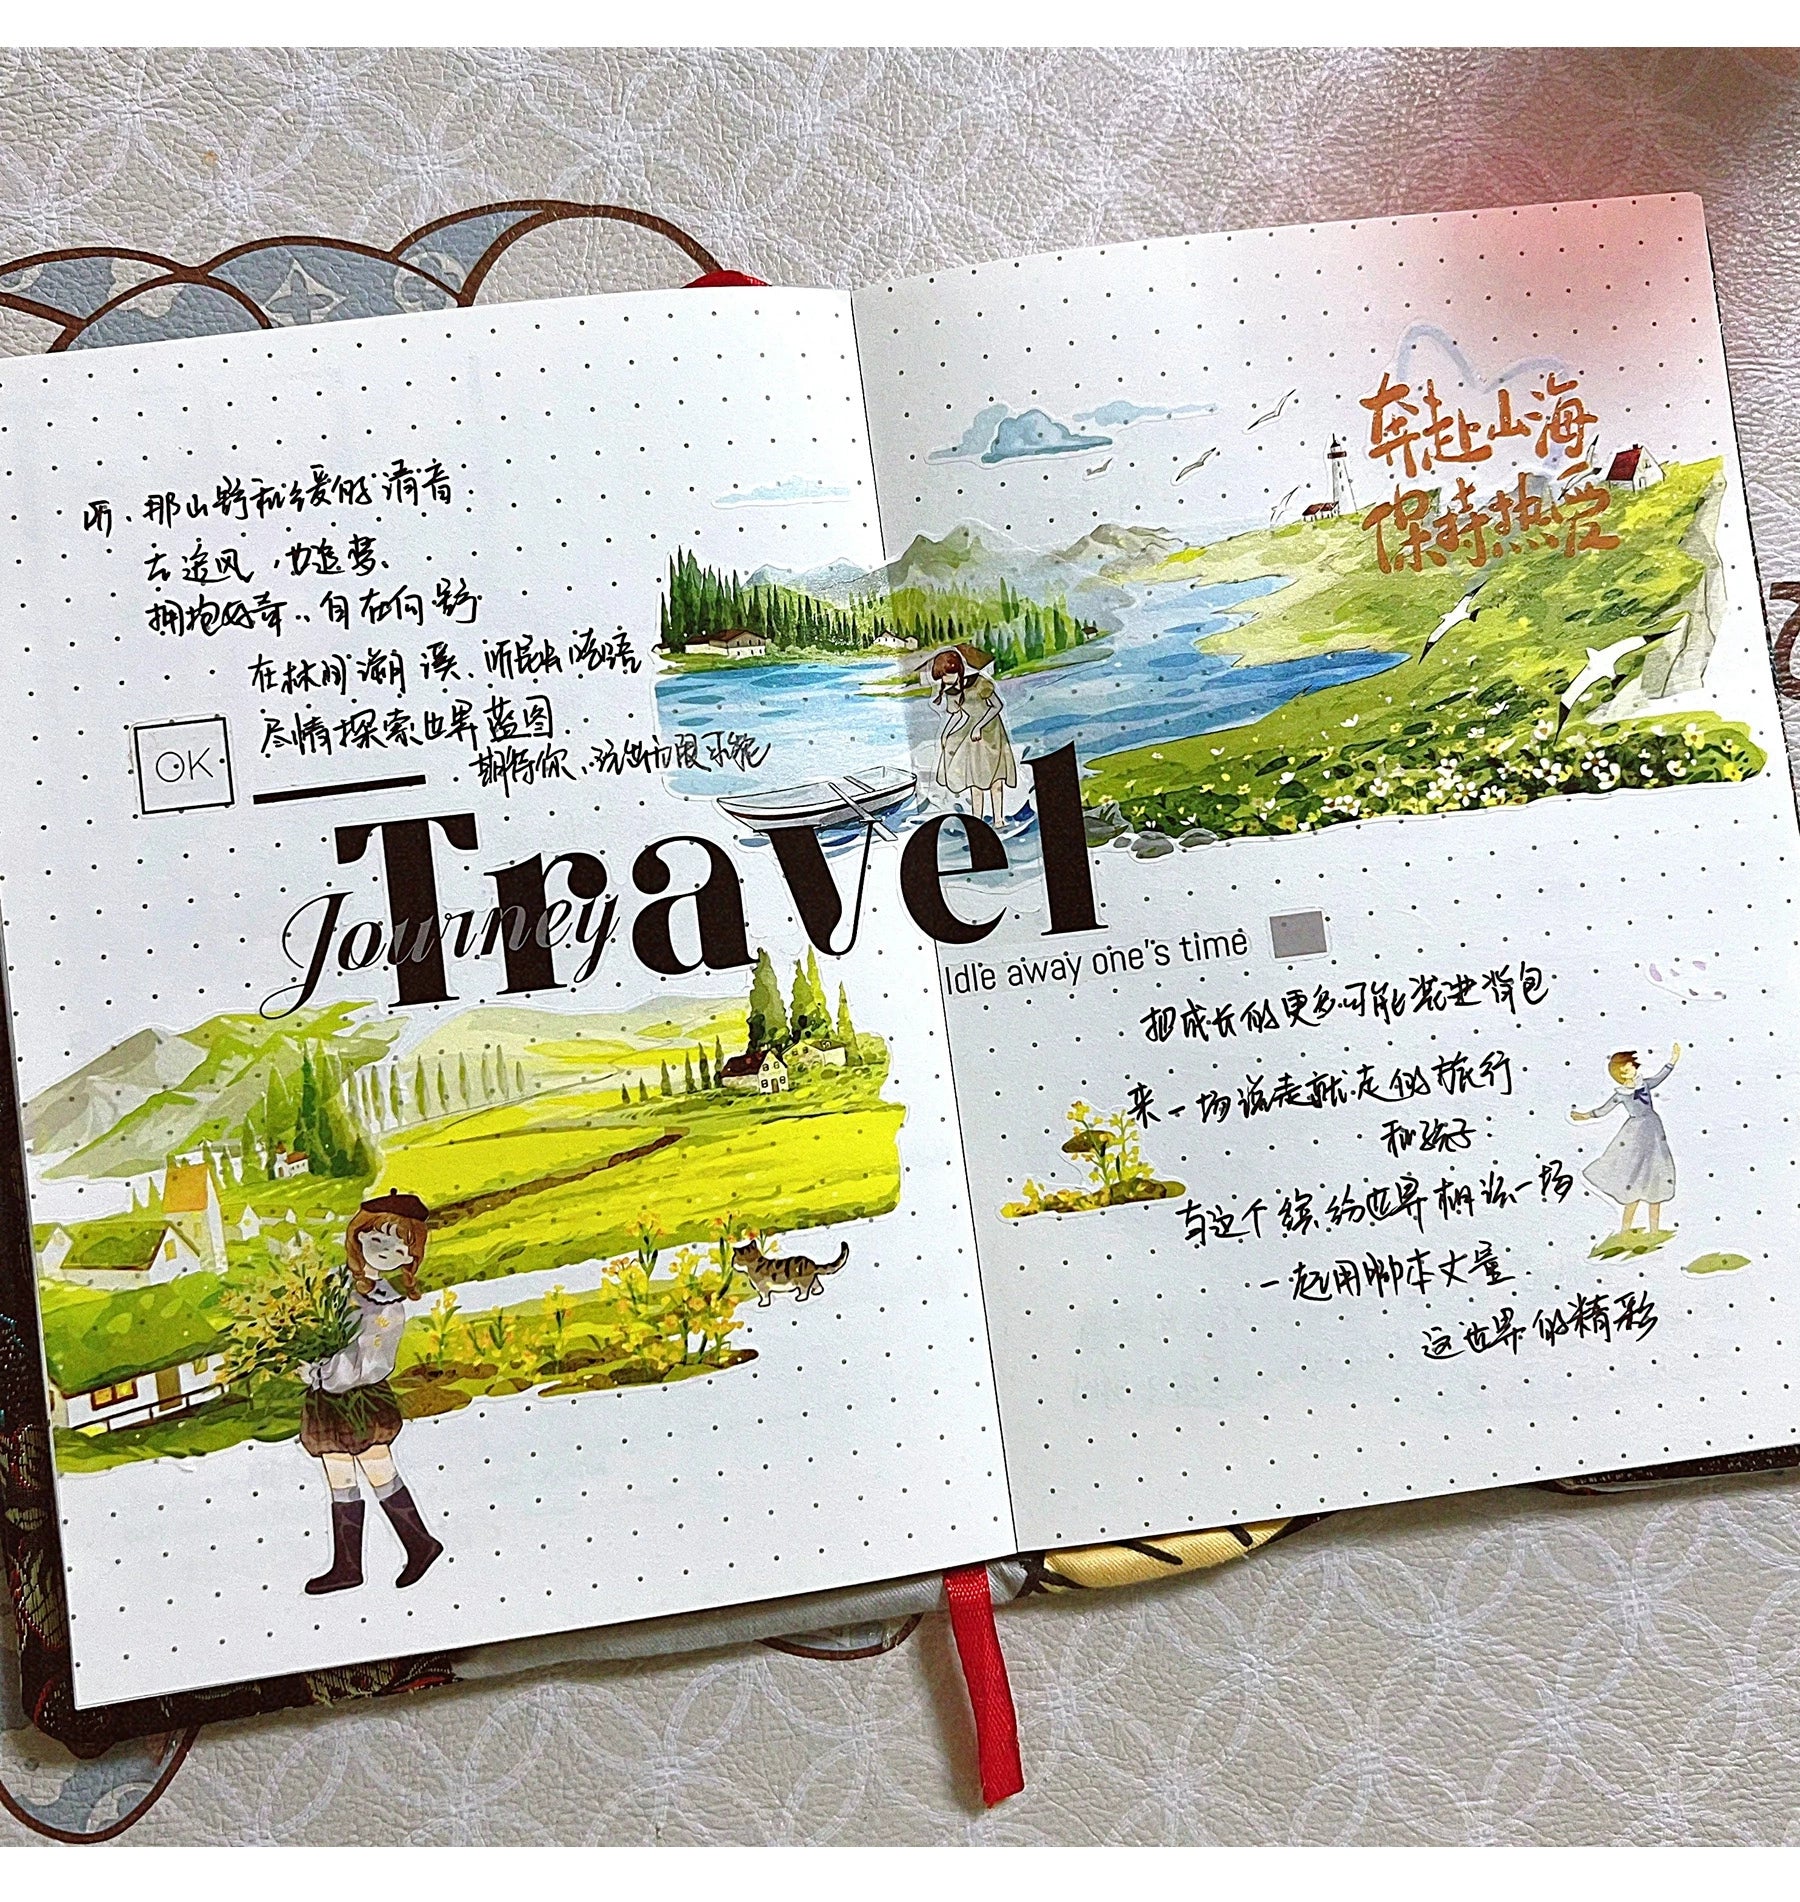 听、那山野和缓的清音
去追风，去追梦、
拥抱好奇、自在向野
在林间溯溪、听昆虫晓语
尽情探索世界蓝图
期待你、玩出无限可能
OK
Travel
Journey
Idle away one's time
奔赴山海
保持热爱
把成长的更多可能装进背包
来一场说走就走的旅行
和孩子
与这个缤纷世界相识一场
一起用脚本丈量
这世界的精彩